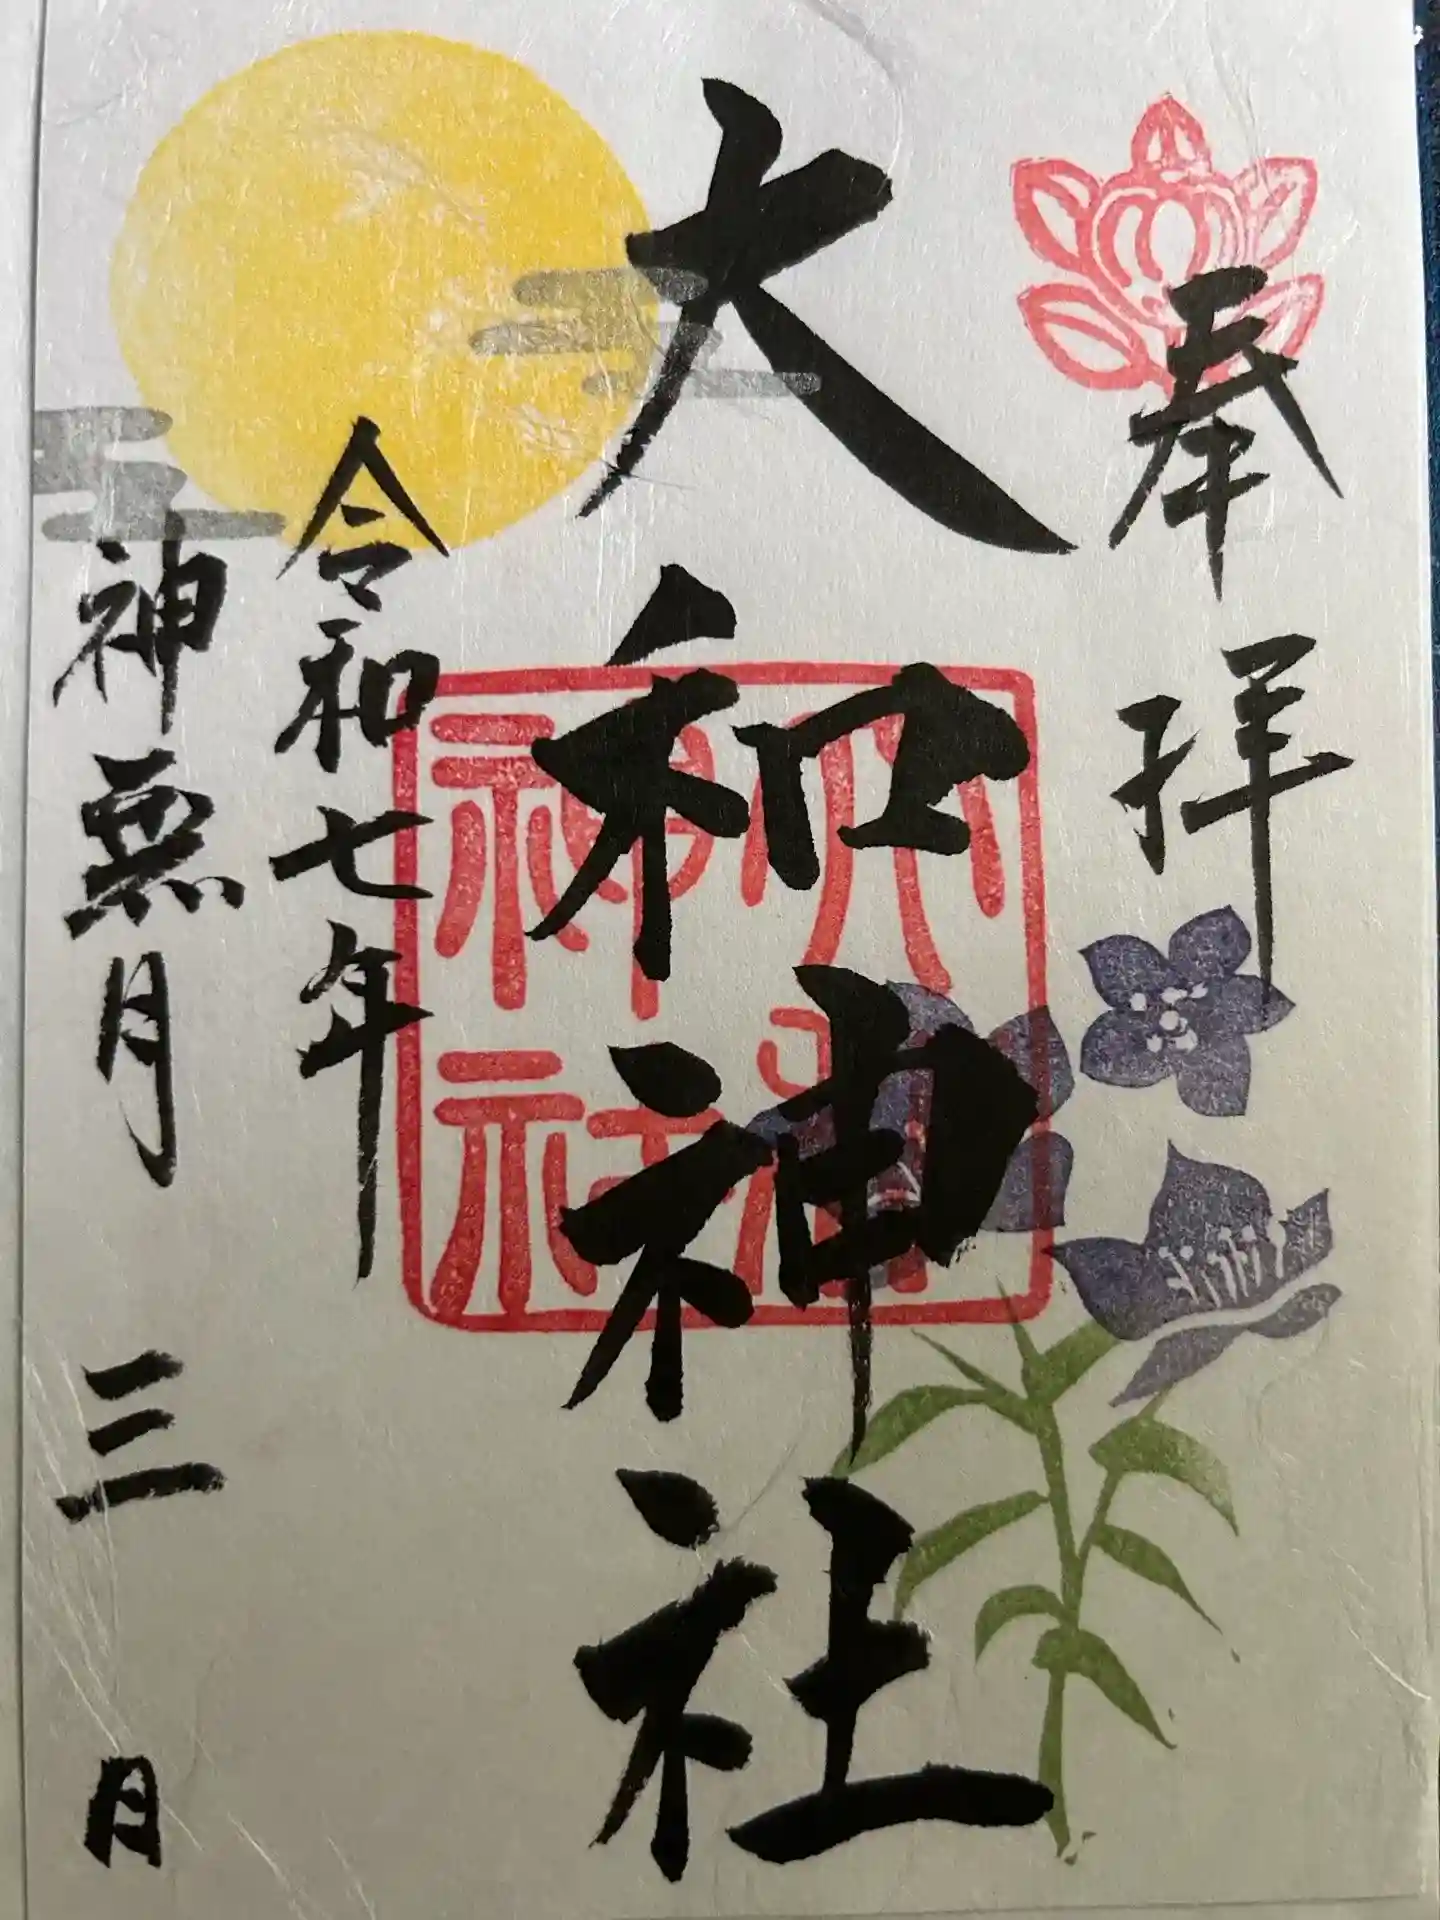 奉拝
大和神社
令和七年
神無月 三日
神社